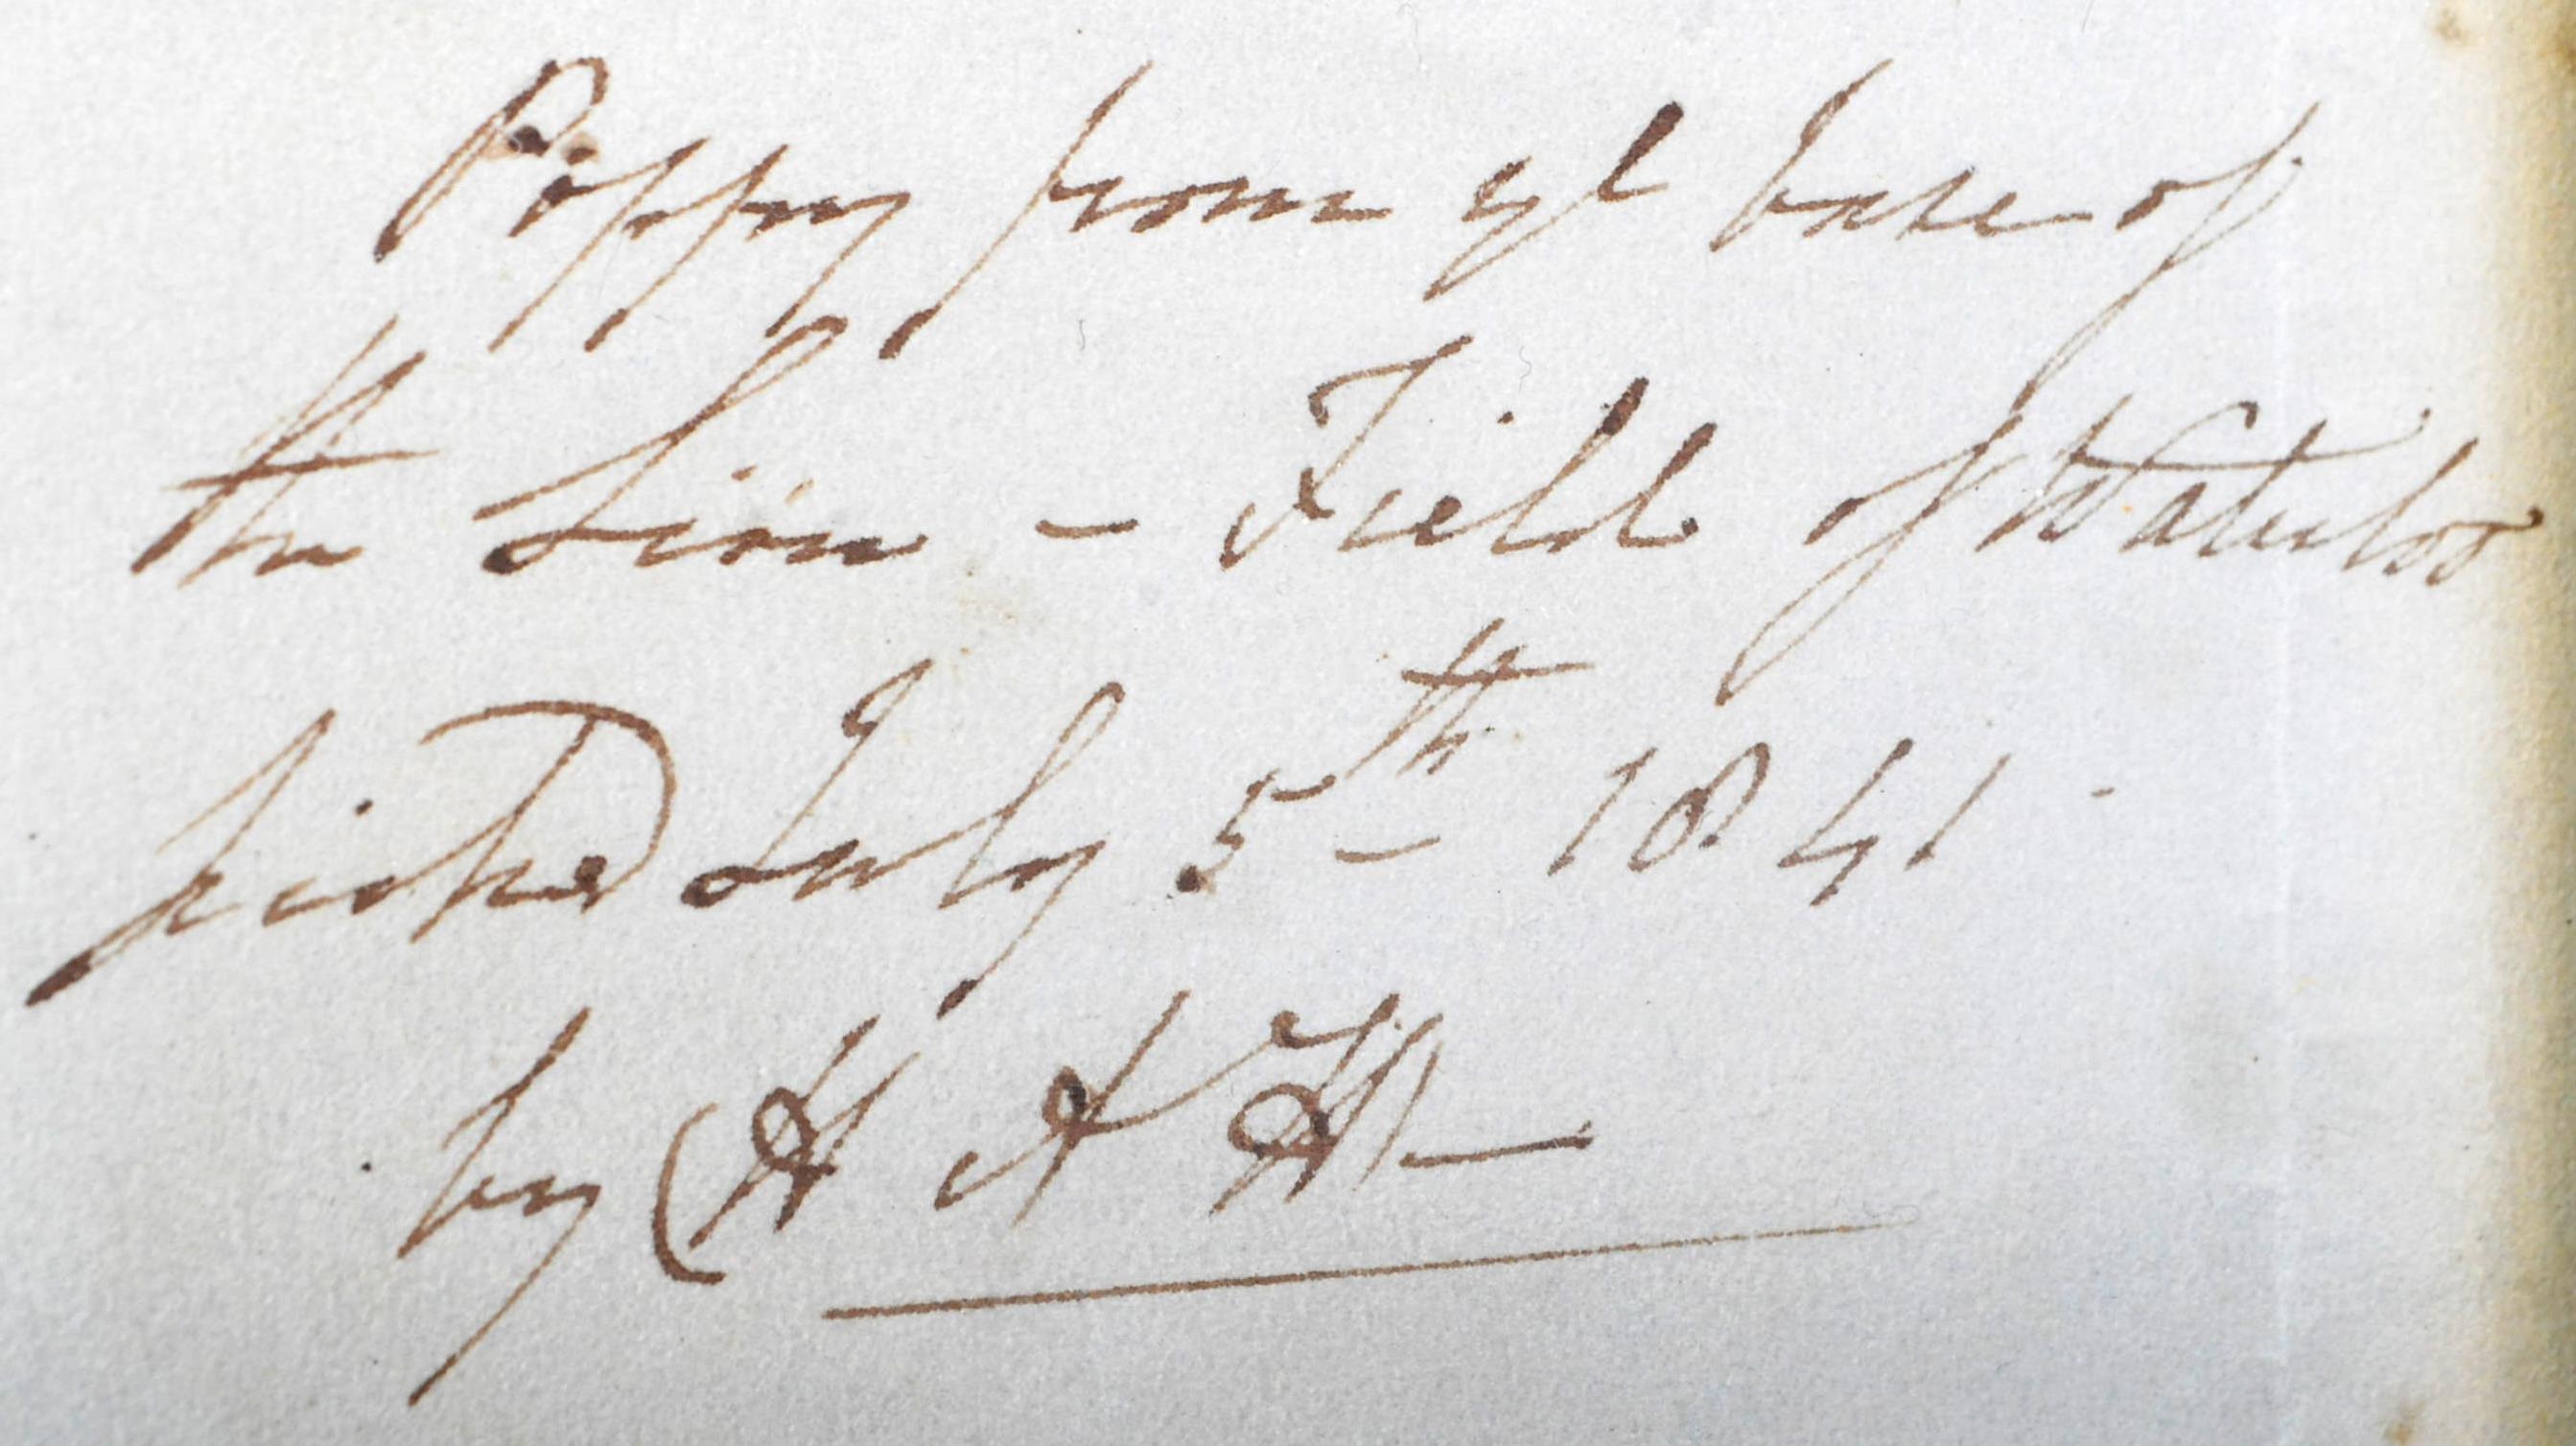 Poppy from ye base of
the Lion – Field of Waterloo
picked July 5th 1841 -
by H A H –